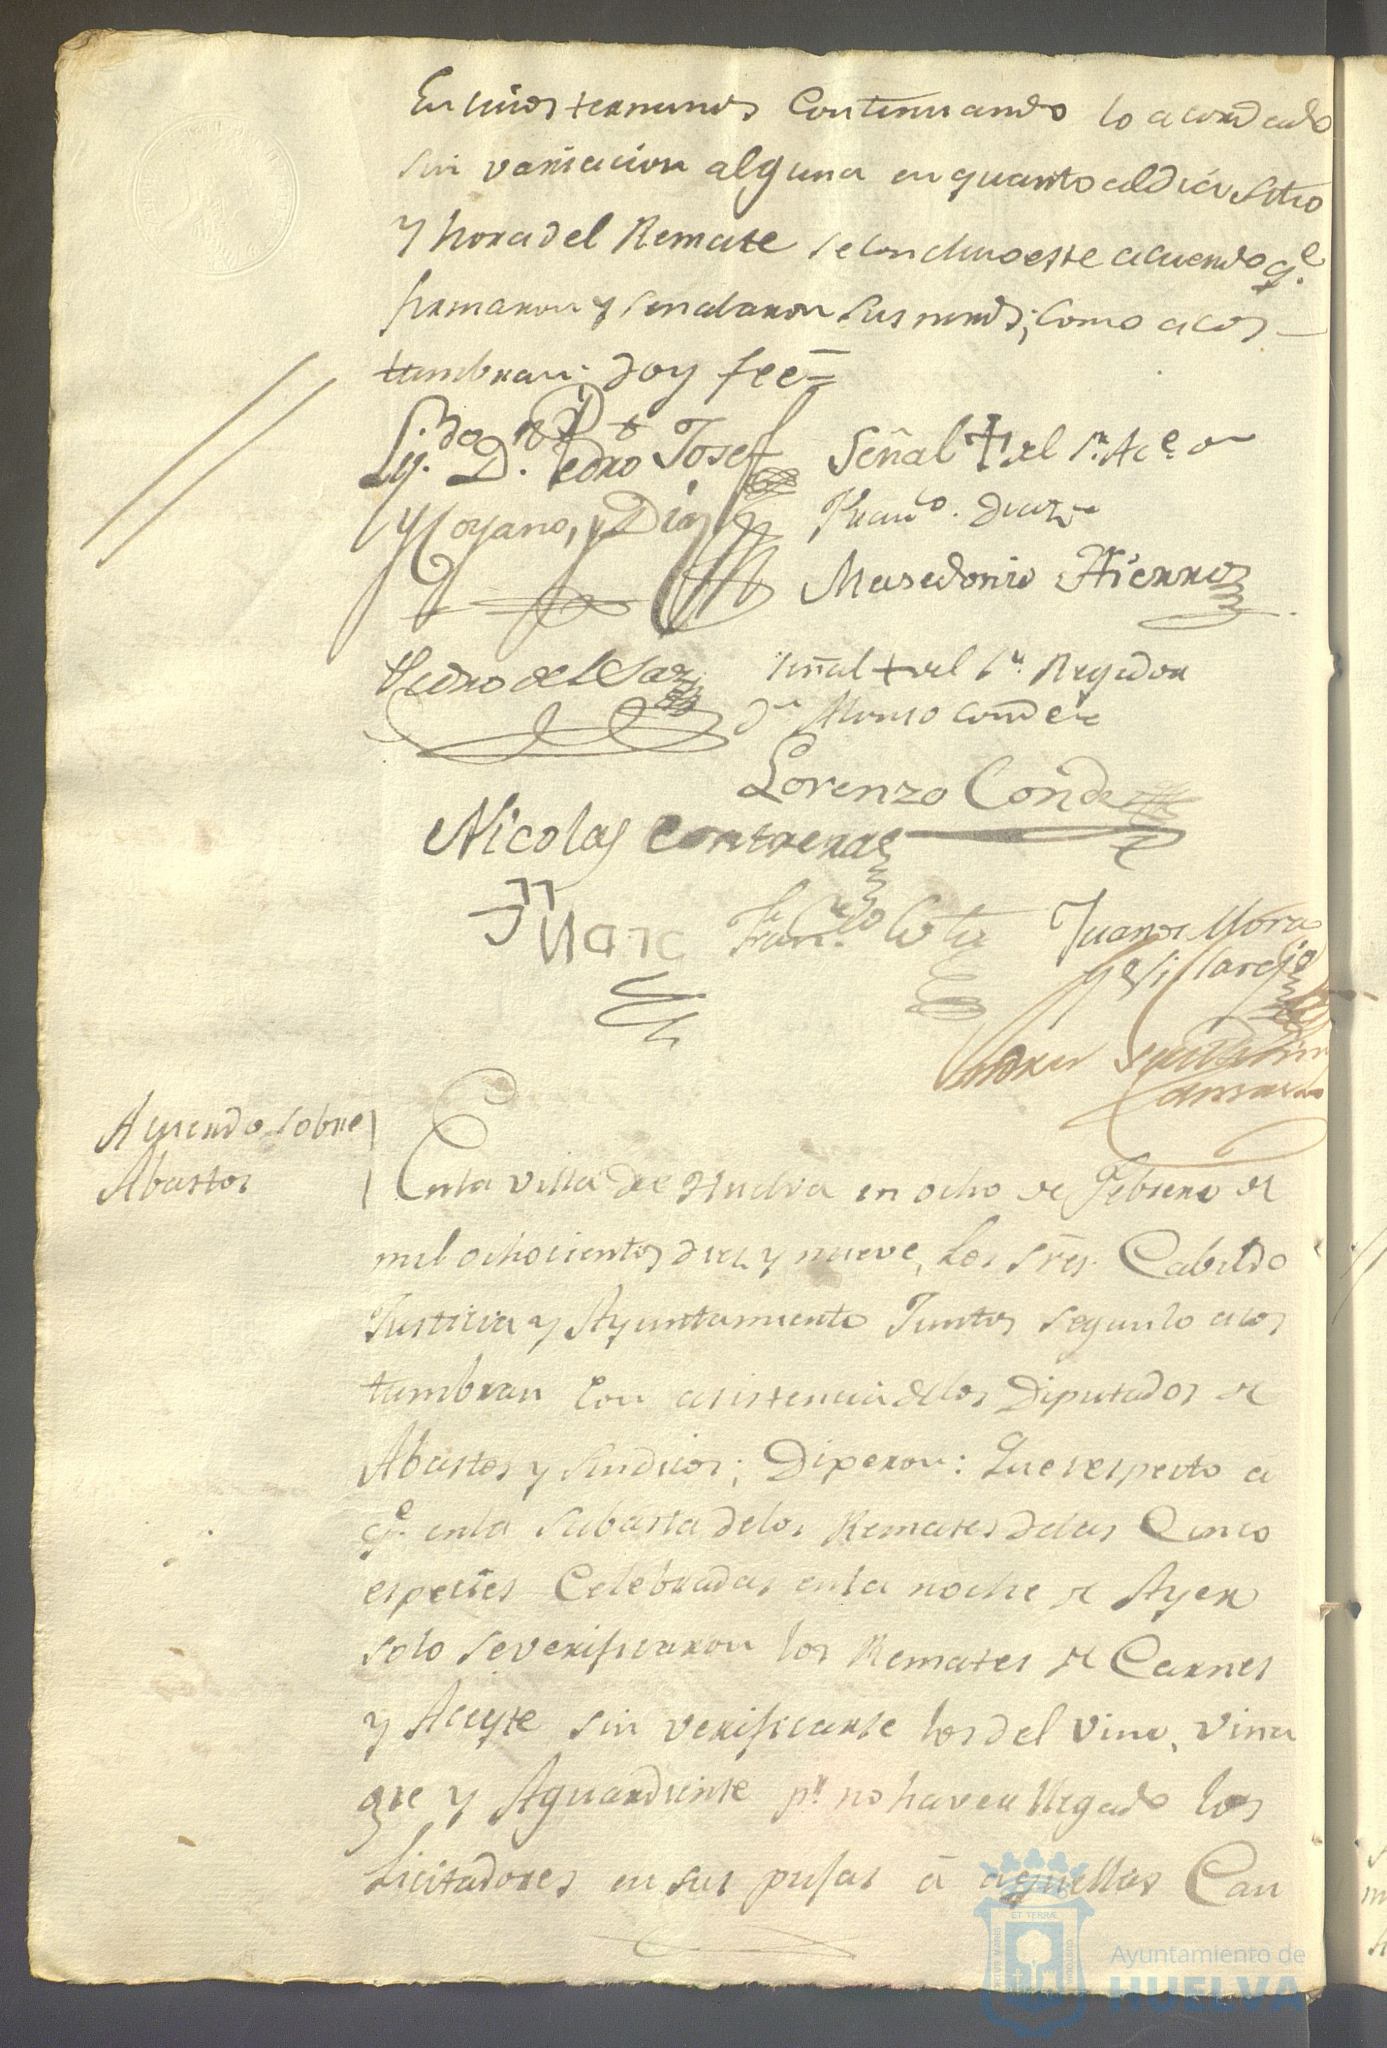 En cuios terminos Continuando lo acordado
sin variacion alguna en quanto al dia, Sitio
y hora del Remate se concluio este acuerdo q.e
firmaron y señalaron sus mrds; como acos
tumbran: doy fee =
Lij.do D. Pedro Josef
Moyano, y Diaz
Señal + del S.r Alc.e or
Fran.co Diaz
Masedonio Hierro
Pedro de le Saz
señal + del S.r Regidor
D.n Alonso Conde
Lorenzo Conde
Nicolas Contreras
Fran.co Cota
Juan de Mora
y Villarejo
Acuerdo sobre
Abastos
En la villa de Huelva en ocho de Febrero de
mil ochocientos diez y nueve, Los Sres. Cabildo
Justicia y Ayuntamiento Juntos segun lo acos
tumbran con asistencia de los Diputados de
Abastos y Sindicos; Dixeron: Que respecto a
q.e en la Subasta de los Remates de las Cinco
especies Celebradas en la noche de Ayer
solo se verificaron los Remates de Carnes
y Aceyte sin verificarse los del vino, vina
gre y Aguardiente p.r no haver llegado los
Licitadores en sus pujas á aquellas Can
ET TERRÆ
Ayuntamiento de
HUELVA